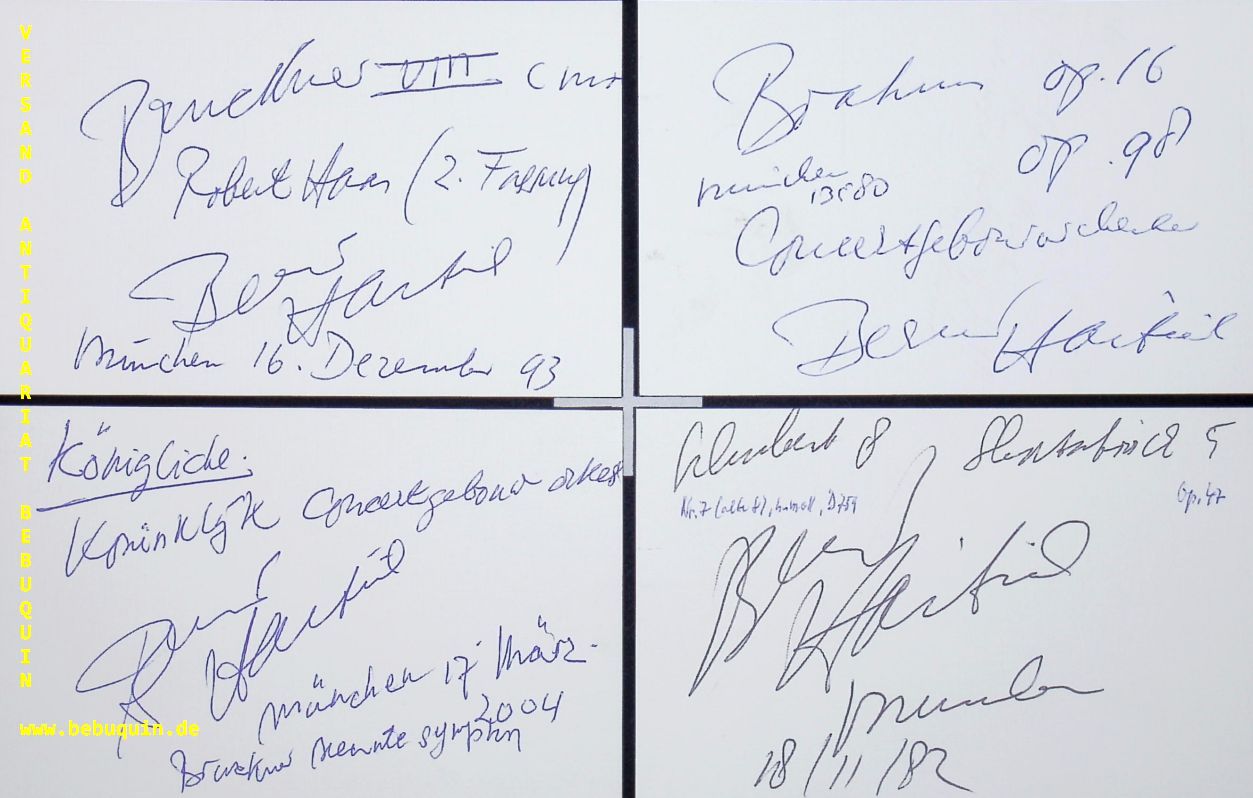 VERSAND ANTIQUARIAT BEBUQUIN
www.bebuquin.de
Bruckner VIII C mo
Robert Haas (2. Fassung)
Bernard Haitink
München 16. Dezember 93
Brahms op. 16
op. 98
München
Bernard Haitink
Königliche.
Koninklijk Concertgebouw orkest
Bernard Haitink
München 17 März.
2004
Bruckner neunte symphn
Schubert 8 Shostakovich 5
Nr. 7 (alte 8), h-moll, D759 Op. 47
Bernard Haitink
München
18/11/82